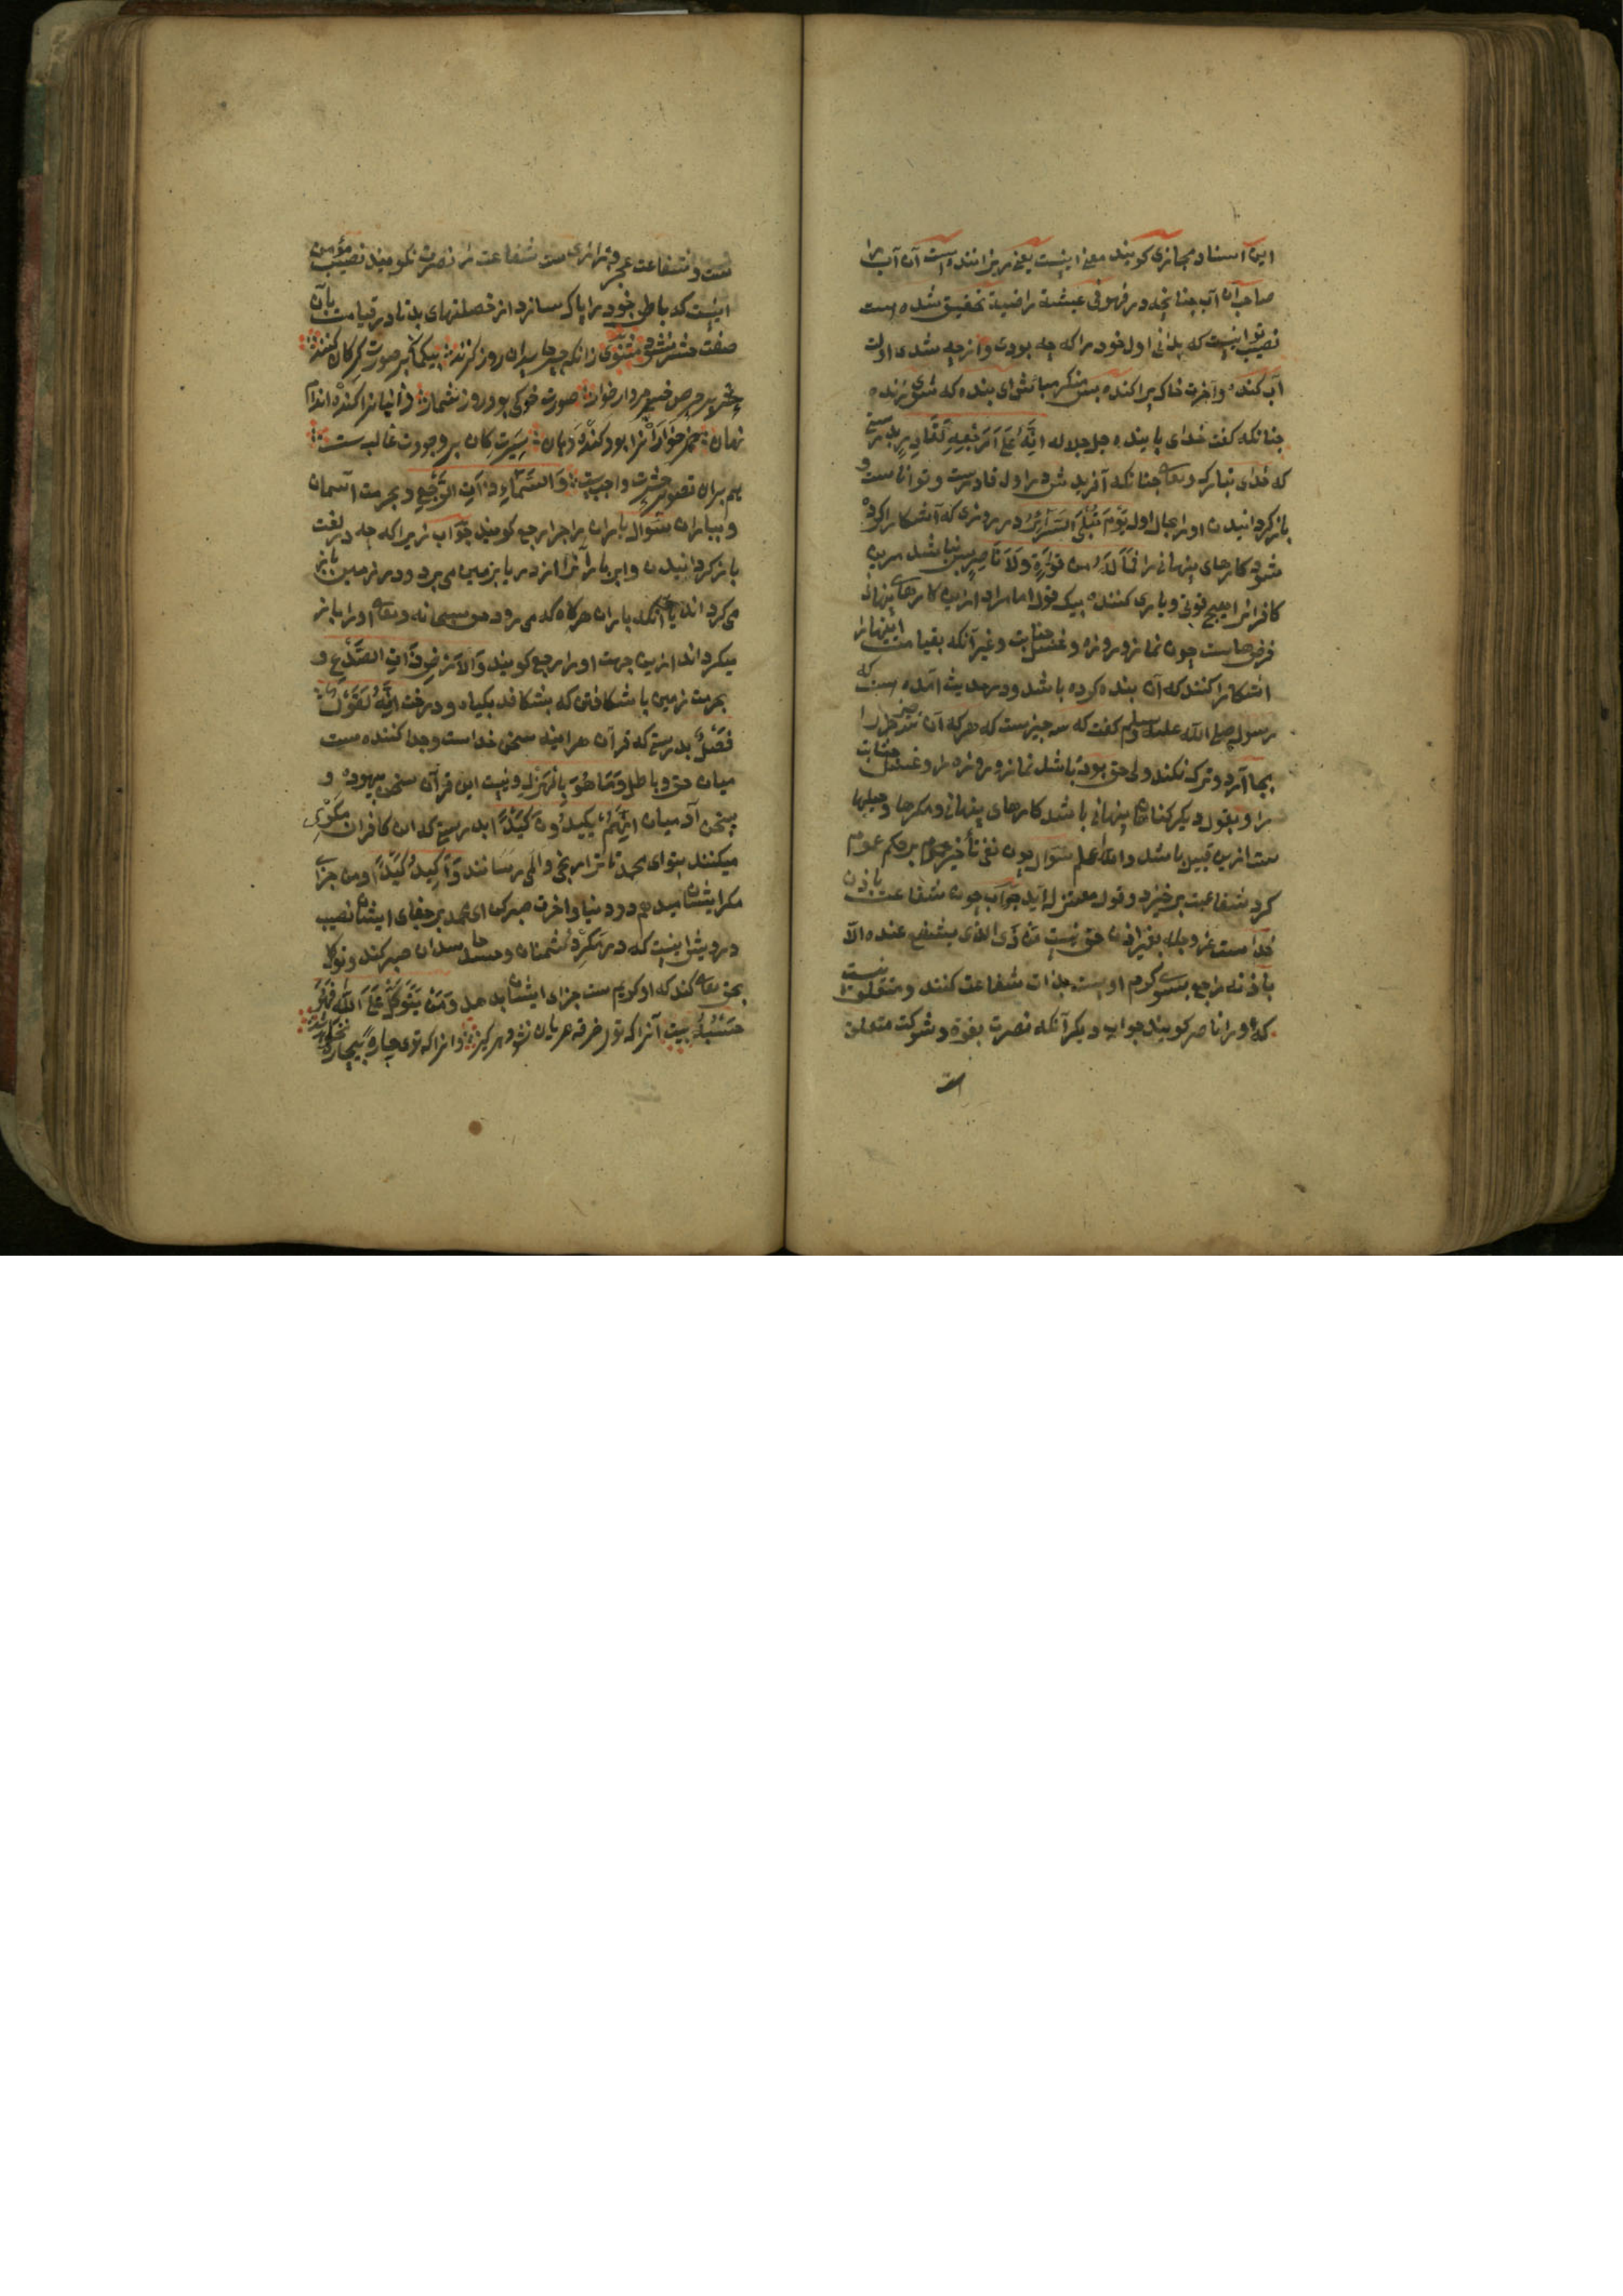 این اسناد مجازی کویند معنی اینست یعنی ریزاننده است آن آب را
صاحب آن آب چنانچه در فهو فی عیشة راضیة تحقیق شده است
نصیب تو اینست که بدانی اول خود را که چه بودی و از چه شدی اولت
آب کنده و آخرت خاک پراکنده پس منکر مباش ای بنده که شوی زنده
چنانکه کفت خدای پاینده جل جلاله اِنَّهُ عَلَیٰ رَجْعِهِ لَقَادِرٌ بدرستی
که خدای تبارک و تعالی چنانکه آفریدش در اول قادرست و تواناست و
باز کردانیدن او را بحال اول یَوْمَ تُبْلَی السَّرَائِرُ در روزی که آشکارا کرده
شود کارهای پنهانی را فَمَا لَهُ مِن قُوَّةٍ وَلَا نَاصِرٍ پس نباشد مرین
کافرانرا هیچ قوتی و یاری کننده بیک قول اما مراد ازین کارهای پنهانی
فرض هاست چون نماز و روزه و غسل جنابت و غیر آنکه بقیامت اینها را
اشکارا کنند که آن بنده کرده باشد و در حدیث آمده است که
رسول صلی الله علیه وسلم کفت که سه چیزست که هر که آن سه چیز را
بجا آرد و ترک نکند ولی حق بوده باشد نماز و روزه را و غسل جنابت
را و بقول دیکر کناهان پنهانی باشد کارهای پنهانی و مکرها و حیلها
ست ازین قبیل باشد والله اعلم سوال چون نفی ناصر بر حکم عموم
کرد شفاعت برخیزد و قول معتزله آید جواب چون شفاعت باذن
خداست عز وجل بغیر اذن حق نیست مَن ذَی الذی یشفع عنده الا
باذنه راجع بسوی کرم اوست بذات شفاعت کنند و متعلق نیست
که او را ناصر کویند جواب دیکر آنکه نصرت بقوة و شوکت متعلق
ست و شفاعت بعجز و زاری ست شفاعت را نصرت نکویند نصیب مؤمن
اینست که باطن خود را پاک سازد از خصلتهای بد تا در قیامت بآن
صفت حشر نشود مثنوی زانکه حشر حاسدان روز کزند بیکمان بر صورت کرکان کنند
حشر پر حرص خس مردار خوار صورت خوکی بود روز شمار زانیانرا کنده اندام
نهان خمرخوارانرا بود کنده دهان سیرت کان بر وجودت غالب ست
هم بران تصویر حشرت واجب ست وَالسَّمَاءِ ذَاتِ الرَّجْعِ و بحرمت آسمان
و بباران سوال باران را چرا رجع کویند جواب زیرا که چه در لغت
باز کردانیدن و ابر بارانرا از دریا بزمین می برد و در زمین باز
می کرداند یا آنکه باران هرکاه که می رود حق سبحانه و تعالی او را باز
میکرداند ازین جهت او را رجع کویند وَالْأَرْضِ ذَاتِ الصَّدْعِ و
بحرمت زمین با شکافتن که بشکافد بکیاه و درخت اِنَّهُ لَقَوْلٌ
فَصْلٌ بدرستی که قرآن هراینه سخن خداست و جدا کننده ست
میان حق و باطل وَمَا هُوَ بِالْهَزْلِ و نیست این قرآن سخن بیهوده و
سخن آدمیان اِنَّهُمْ یَکِیدُونَ کَیْدًا بدرستی که آن کافران مکری
میکنند بتو ای محمد تا ترا رنجی و المی رسانند وَأَکِیدُ کَیْدًا و من جزای
مکر ایشان میدهم در دنیا و اخرت صبر کن ای محمد بر جفای ایشان نصیب
درویش اینست که در مکر دشمنان و حسد حاسدان صبر کند و توکل
بحق تعالی کند که او کریم ست جزای ایشان بدهد وَمَن یَتَوَکَّلْ عَلَی اللّٰهِ فَهُوَ
حَسْبُهُ بیت آنرا که تو خرقه عریان نشود هرکز وانرا که توی چاره بیچاره نخواهد شد